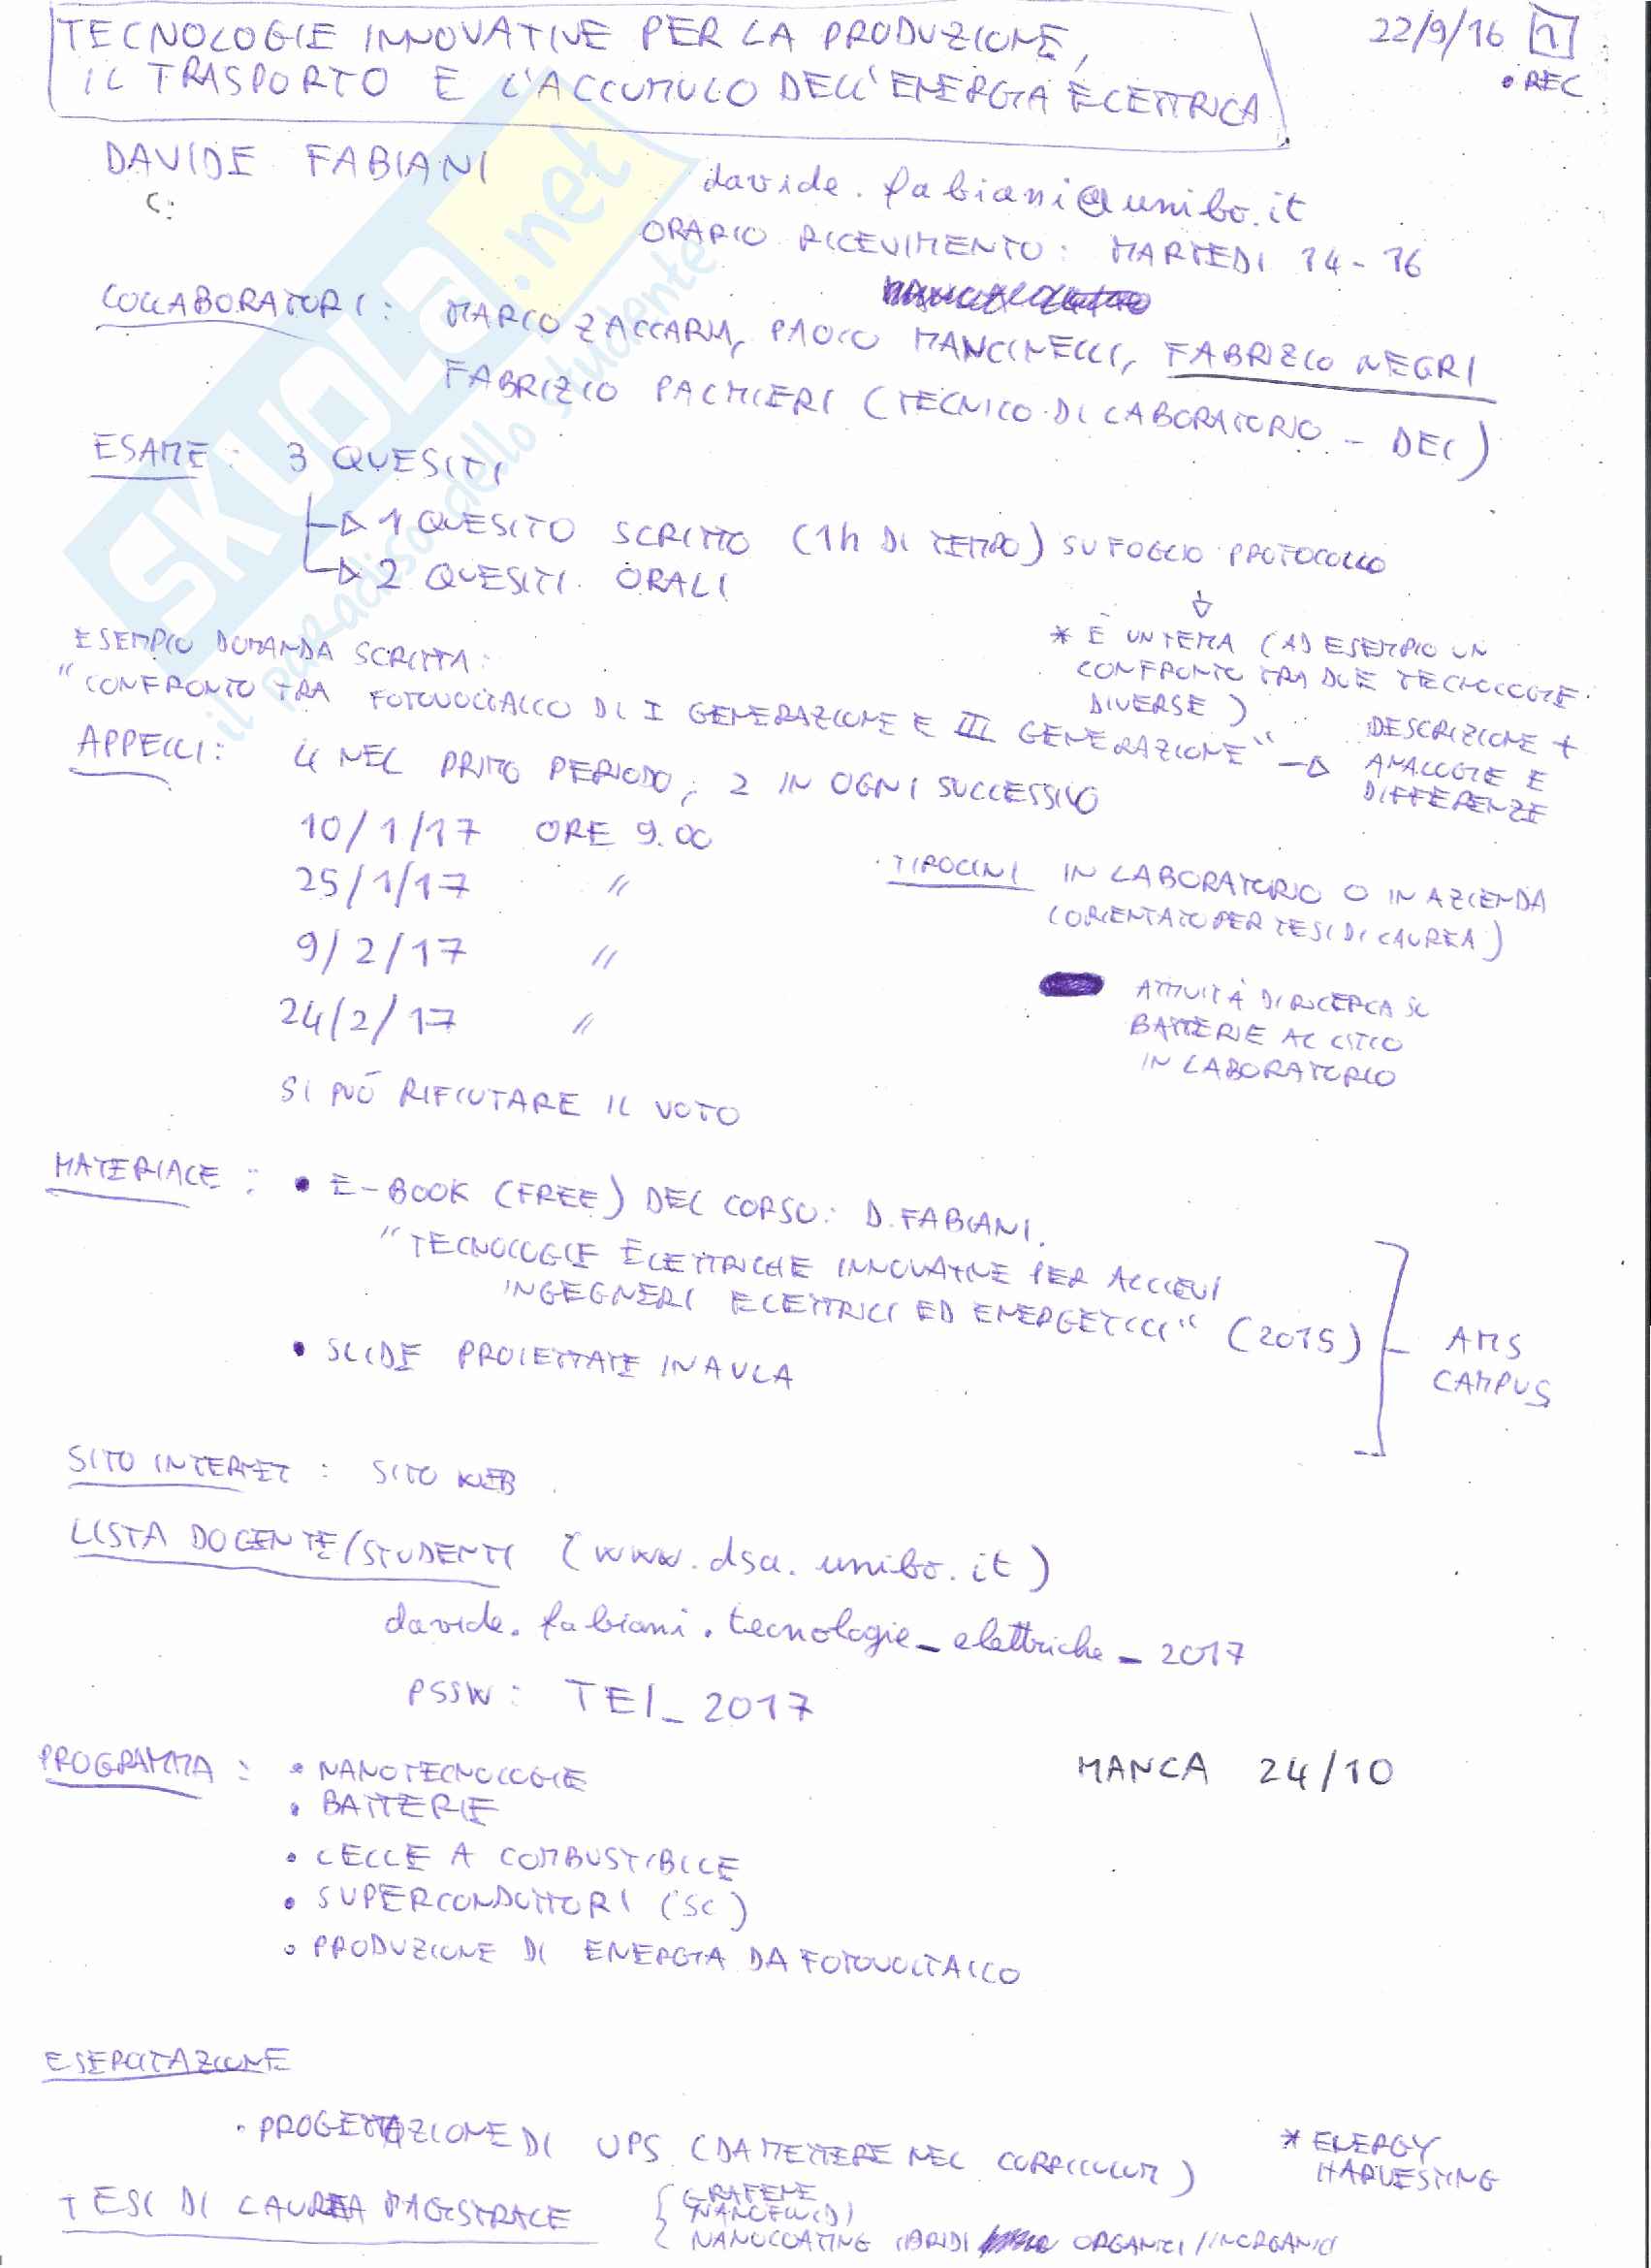 TECNOLOGIE INNOVATIVE PER LA PRODUZIONE,
IL TRASPORTO E L'ACCUMULO DELL'ENERGIA ELETTRICA
22/9/16 1
• REC
DAVIDE FABIANI
C:
davide.fabiani@unibo.it
ORARIO RICEVIMENTO: MARTEDI 14-16
COLLABORATORI: MARCO ZACCARIA, PAOLO MANCINELLI, FABRIZIO NEGRI
FABRIZIO PALMIERI (TECNICO DI LABORATORIO - DEI)
ESAME: 3 QUESITI
1 QUESITO SCRITTO (1h DI TEMPO) SU FOGLIO PROTOCOLLO
2 QUESITI ORALI
* È UN TEMA (AD ESEMPIO UN
CONFRONTO TRA DUE TECNOLOGIE
DIVERSE)
ESEMPIO DOMANDA SCRITTA:
"CONFRONTO TRA FOTOVOLTAICO DI I GENERAZIONE E III GENERAZIONE"
DESCRIZIONE +
ANALOGIE E
DIFFERENZE
APPELLI: 4 NEL PRIMO PERIODO, 2 IN OGNI SUCCESSIVO
10/1/17 ORE 9.00
25/1/17 "
9/2/17 "
24/2/17 "
SI PUÓ RIFIUTARE IL VOTO
TIROCINI IN LABORATORIO O IN AZIENDA
(ORIENTATO PER TESI DI LAUREA)
ATTIVITÀ DI RICERCA SU
BATTERIE AL LITIO
IN LABORATORIO
MATERIALE: • E-BOOK (FREE) DEL CORSO: D. FABIANI.
"TECNOLOGIE ELETTRICHE INNOVATIVE PER ALLIEVI
INGEGNERI ELETTRICI ED ENERGETICI" (2015)
• SLIDE PROIETTATE IN AULA
AMS
CAMPUS
SITO INTERNET: SITO WEB
LISTA DOCENTE/STUDENTI (www.dsa.unibo.it)
davide.fabiani.tecnologie_elettriche_2017
PSSW: TEI_2017
PROGRAMMA: • NANOTECNOLOGIE
• BATTERIE
• CELLE A COMBUSTIBILE
• SUPERCONDUTTORI (SC)
• PRODUZIONE DI ENERGIA DA FOTOVOLTAICO
MANCA 24/10
ESERCITAZIONE
• PROGETTAZIONE DI UPS (DA METTERE NEL CURRICULUM)
* ENERGY
HARVESTING
TESI DI LAUREA MAGISTRALE
GRAFENE
NANOFLUIDI
NANOCOATING IBRIDI ORGANICI/INORGANICI
SKUOLA.net
il paradiso dello studente